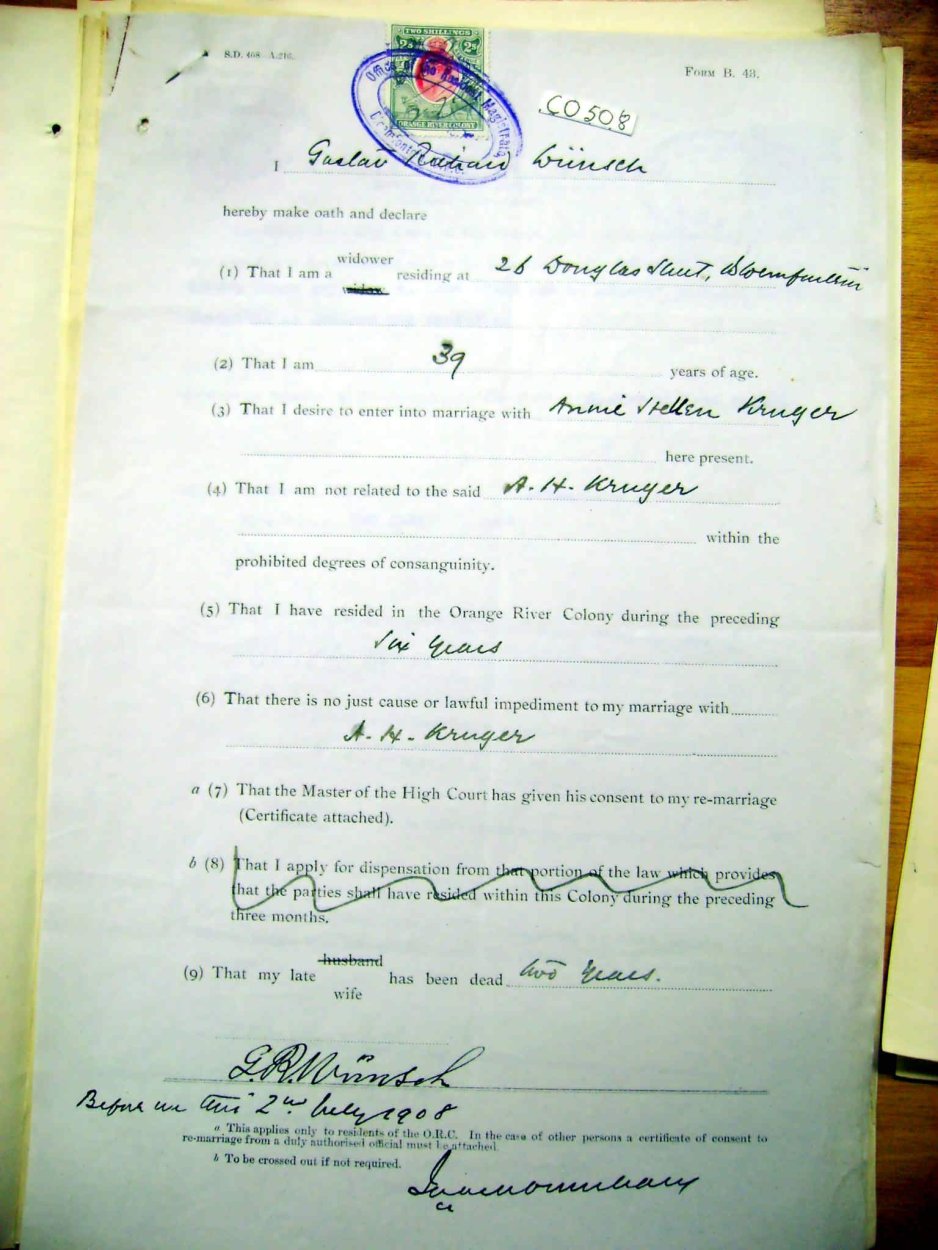 S.D. 468 A.216.
FORM B. 43.
TWO SHILLINGS
2s 2s
ORANGE RIVER COLONY
Office of the Resident Magistrate
CO 50.8
I Gustav Richard Wünsch
hereby make oath and declare
(1) That I am a widower widow residing at 26 Douglas Street, Bloemfontein
(2) That I am 39 years of age.
(3) That I desire to enter into marriage with Annie Hellen Kruger
here present.
(4) That I am not related to the said A. H. Kruger
within the
prohibited degrees of consanguinity.
(5) That I have resided in the Orange River Colony during the preceding
Six Years
(6) That there is no just cause or lawful impediment to my marriage with
A. H. Kruger
a (7) That the Master of the High Court has given his consent to my re-marriage
(Certificate attached).
b (8) That I apply for dispensation from that portion of the law which provides
that the parties shall have resided within this Colony during the preceding
three months.
(9) That my late husband wife has been dead two Years.
G. R. Wünsch
Before me this 2nd July 1908
a This applies only to residents of the O.R.C. In the case of other persons a certificate of consent to
re-marriage from a duly authorised official must be attached.
b To be crossed out if not required.